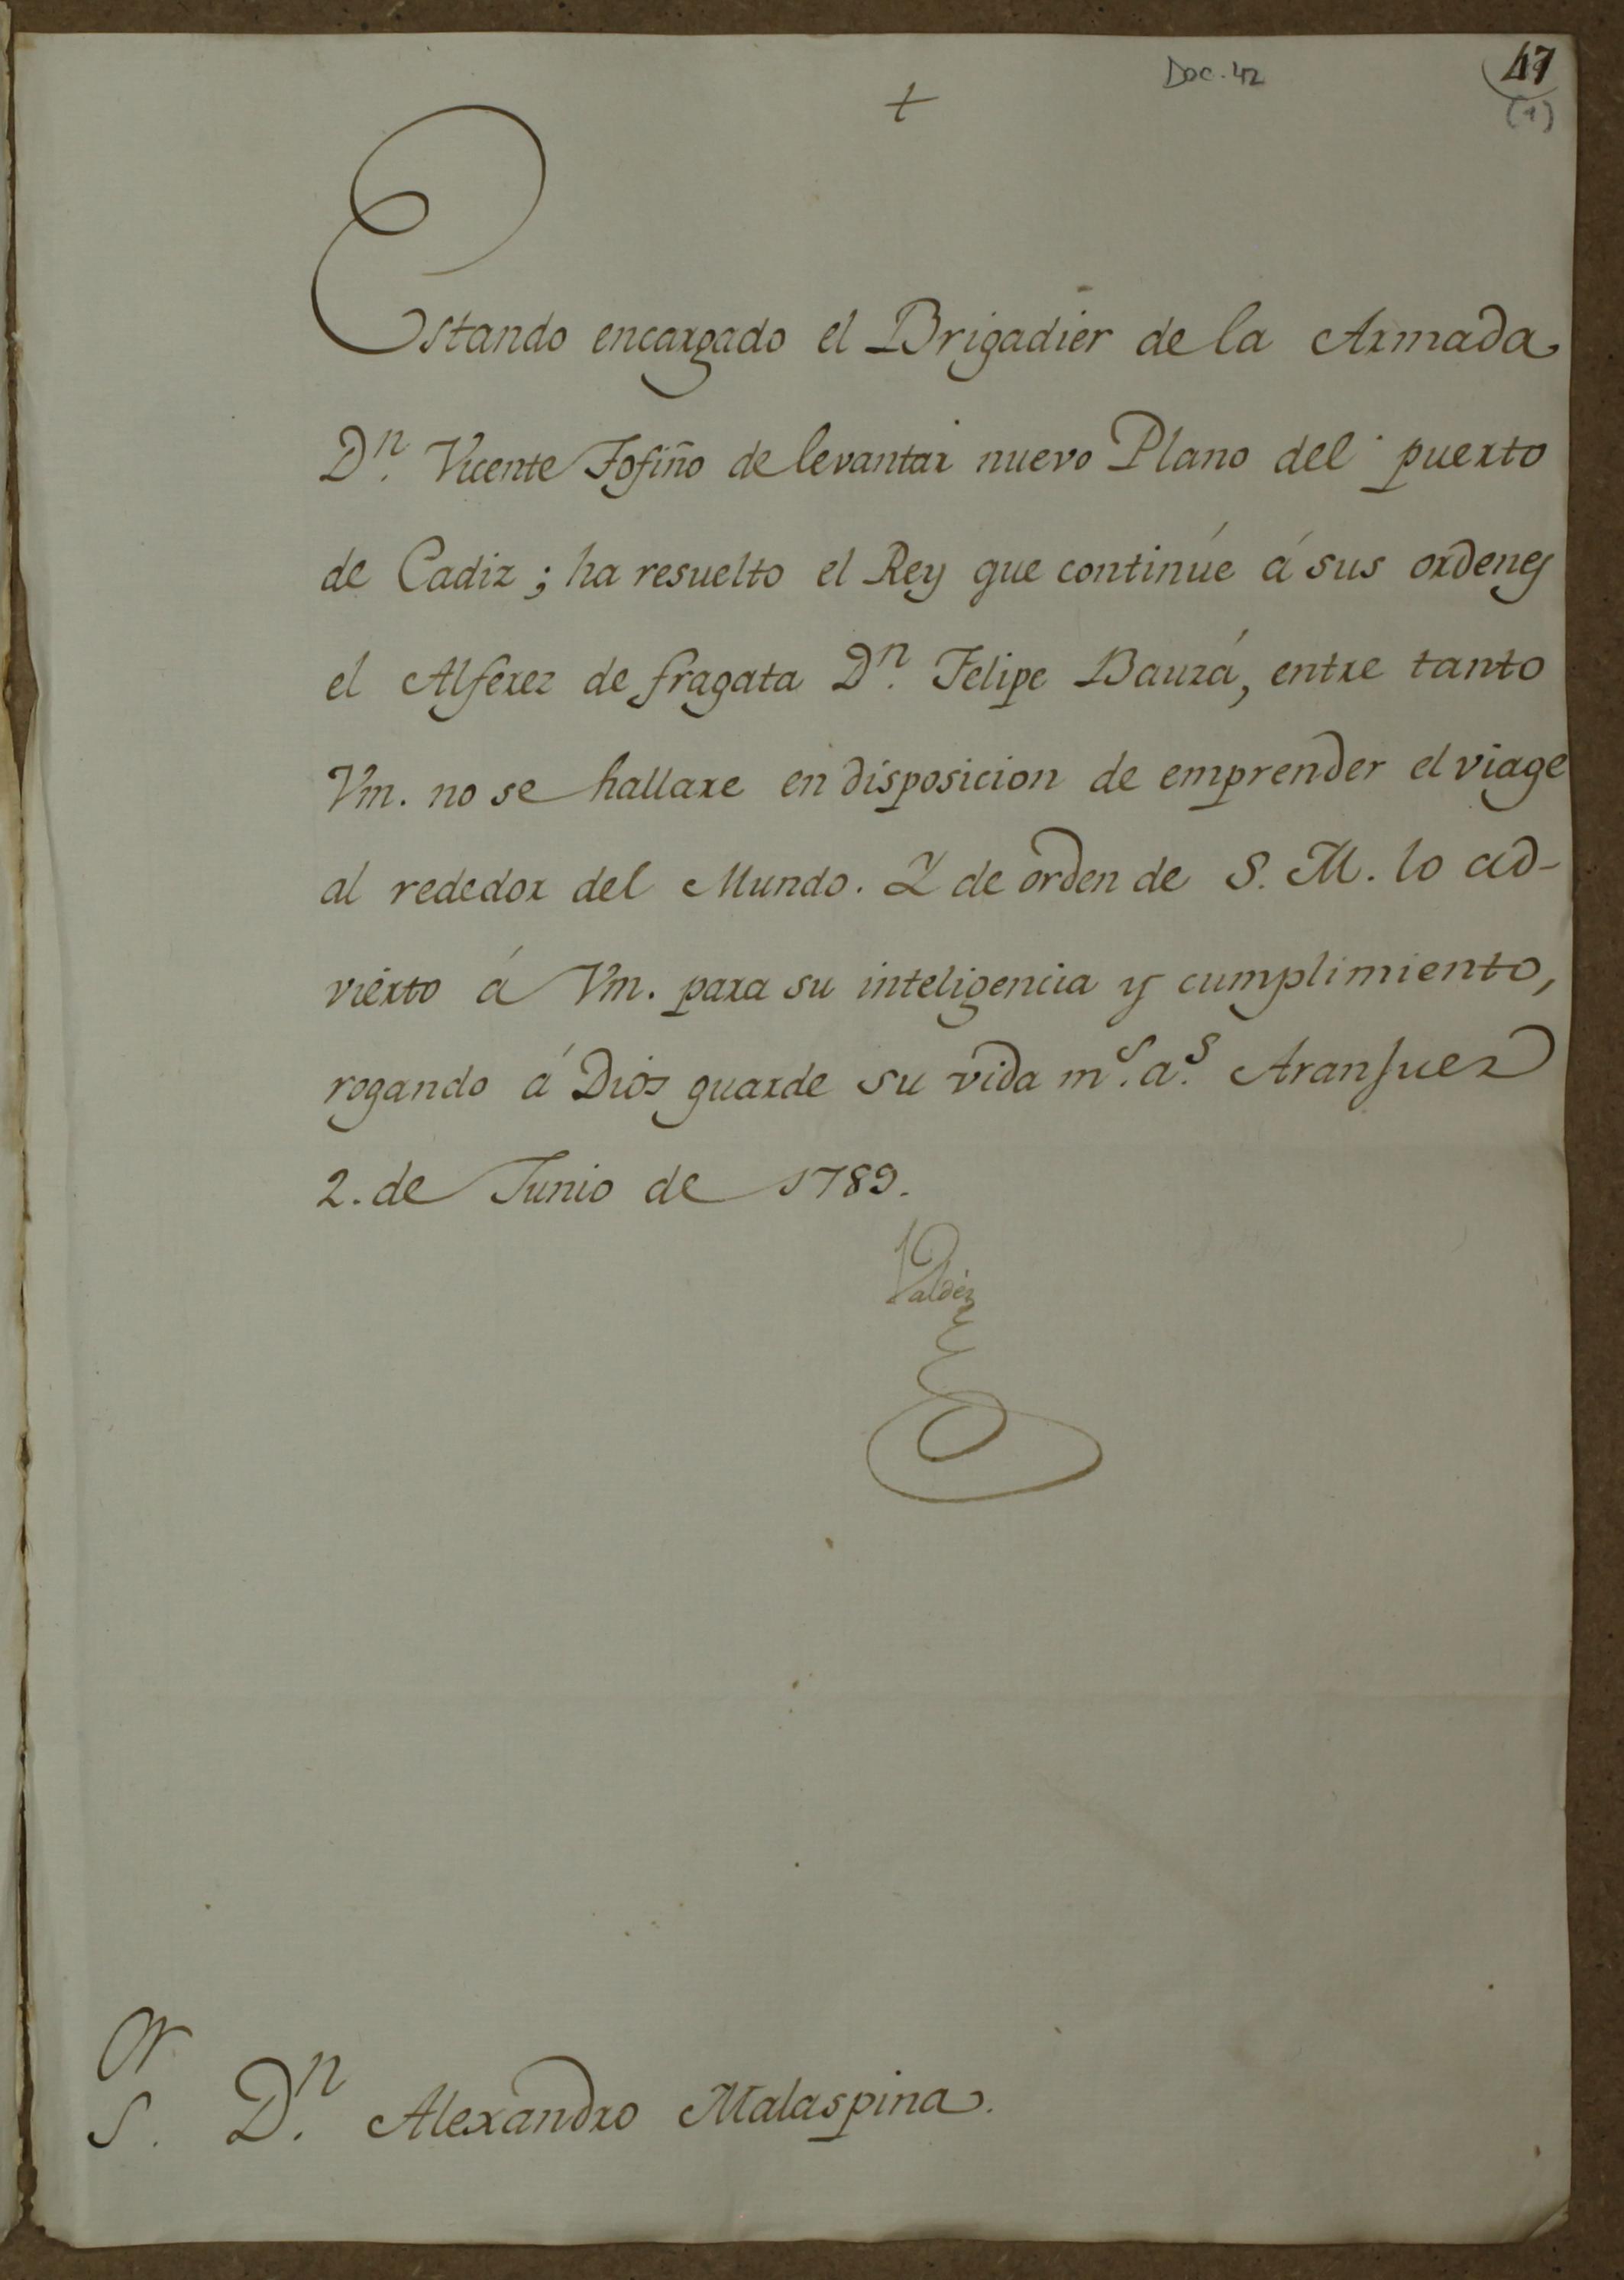 Doc. 42
47
(1)
+
Estando encargado el Brigadier de la Armada
Dⁿ. Vicente Tofiño de levantar nuevo Plano del puerto
de Cadiz; ha resuelto el Rey que continúe á sus ordenes
el Alferez de fragata Dⁿ. Felipe Bauzá, entre tanto
Vm. no se hallare en disposicion de emprender el viage
al rededor del Mundo. Y de orden de S. M. lo ad-
vierto á Vm. para su inteligencia y cumplimiento,
rogando á Dios guarde su vida mˢ. aˢ. Aranjuez
2. de Junio de 1789.
Valdés
Sᵒʳ. Dⁿ. Alexandro Malaspina.